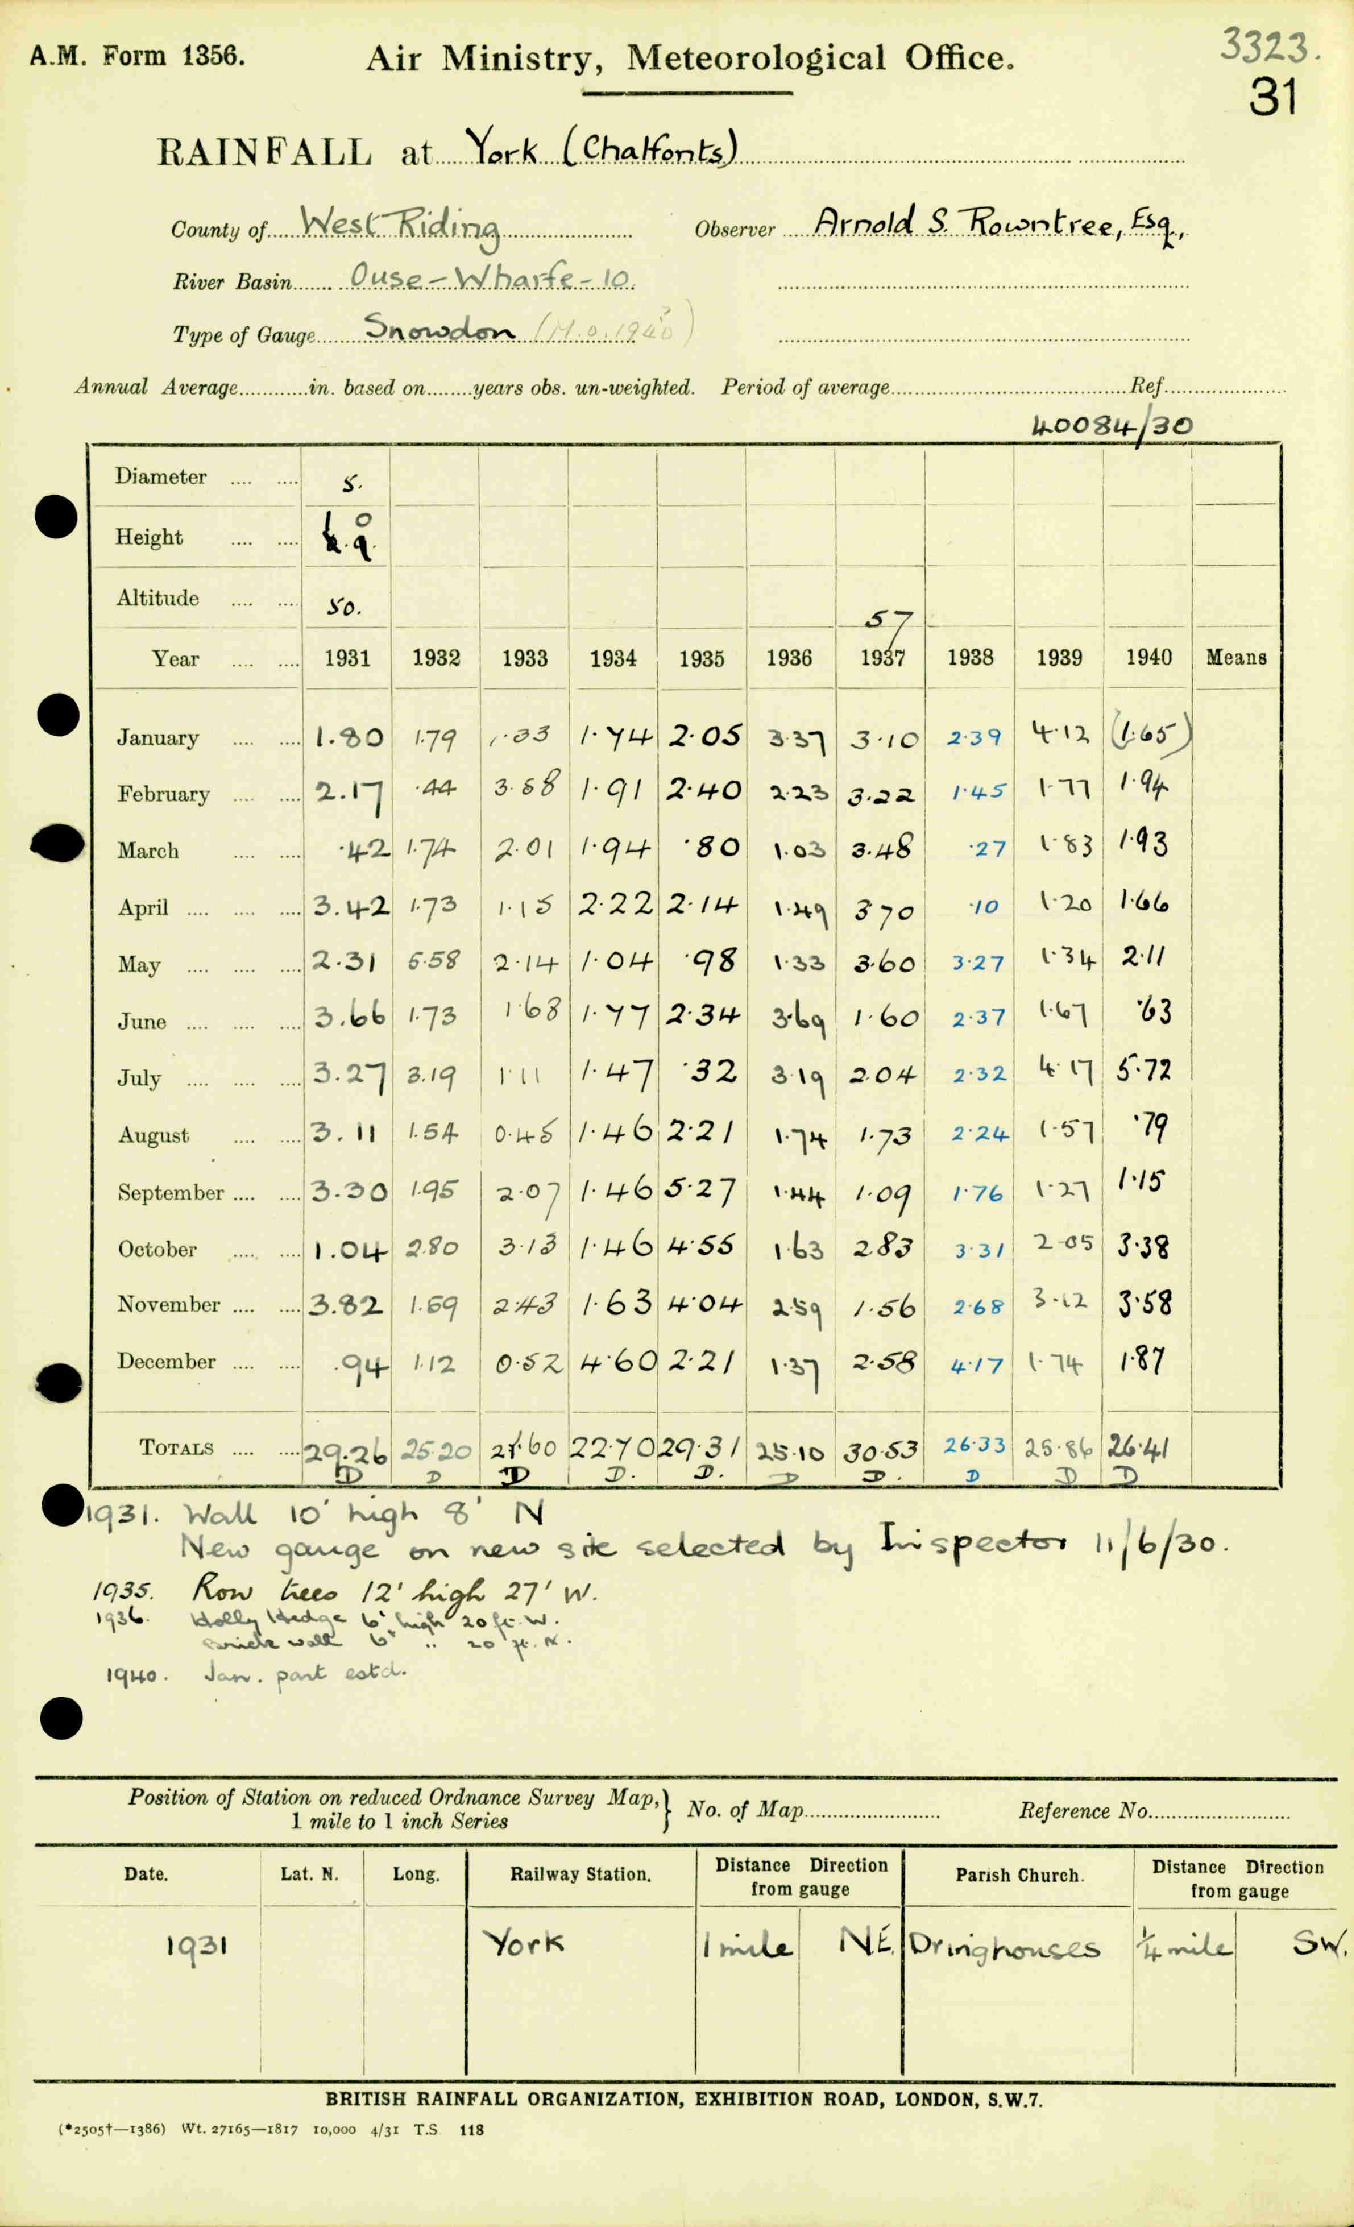 A.M. Form 1356.
Air Ministry, Meteorological Office.
3323.
31
RAINFALL at York (Chalfonts)
County of West Riding Observer Arnold S. Rowntree, Esq.,
River Basin Ouse-Wharfe-10.
Type of Gauge Snowdon (M.O. 1940)
Annual Average in. based on years obs. un-weighted. Period of average Ref.
40084/30
Diameter 5.
Height 1.0
Altitude 50. 57
Year 1931 1932 1933 1934 1935 1936 1937 1938 1939 1940 Means
January 1.80 1.79 1.33 1.74 2.05 3.37 3.10 2.39 4.12 (1.65)
February 2.17 .44 3.58 1.91 2.40 2.23 3.22 1.45 1.77 1.94
March .42 1.74 2.01 1.94 .80 1.03 3.48 .27 1.83 1.93
April 3.42 1.73 1.15 2.22 2.14 1.49 3.70 .10 1.20 1.66
May 2.31 5.58 2.14 1.04 .98 1.33 3.60 3.27 1.34 2.11
June 3.66 1.73 1.68 1.77 2.34 3.69 1.60 2.37 1.67 .63
July 3.27 3.19 1.11 1.47 .32 3.19 2.04 2.32 4.17 5.72
August 3.11 1.54 0.45 1.46 2.21 1.74 1.73 2.24 1.57 .79
September 3.30 1.95 2.07 1.46 5.27 1.44 1.09 1.76 1.27 1.15
October 1.04 2.80 3.13 1.46 4.55 1.63 2.83 3.31 2.05 3.38
November 3.82 1.59 2.43 1.63 4.04 2.59 1.56 2.68 3.12 3.58
December .94 1.12 0.52 4.60 2.21 1.37 2.58 4.17 1.74 1.87
TOTALS 29.26 25.20 21.60 22.70 29.31 25.10 30.53 26.33 25.86 26.41
D D D D. D. D D. D D D
1931. Wall 10' high 8' N
New gauge on new site selected by Inspector 11/6/30.
1935. Row trees 12' high 27' W.
1936. Holly Hedge 6' high 20 ft. W.
Brick wall 6' " 20 ft. N.
1940. Jan. part estd.
Position of Station on reduced Ordnance Survey Map, } No. of Map Reference No.
1 mile to 1 inch Series
Date. Lat. N. Long. Railway Station. Distance Direction from gauge Parish Church. Distance Direction from gauge
1931 York 1 mile NE. Dringhouses 1/4 mile SW.
BRITISH RAINFALL ORGANIZATION, EXHIBITION ROAD, LONDON, S.W.7.
(*2505†—1386) Wt. 27165—1817 10,000 4/31 T.S. 118